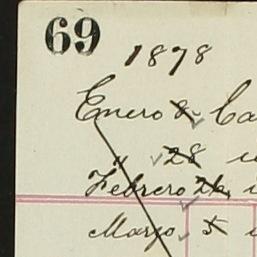 69
1878
Enero 8 Ca
" 28
Febrero 26
Marzo 5